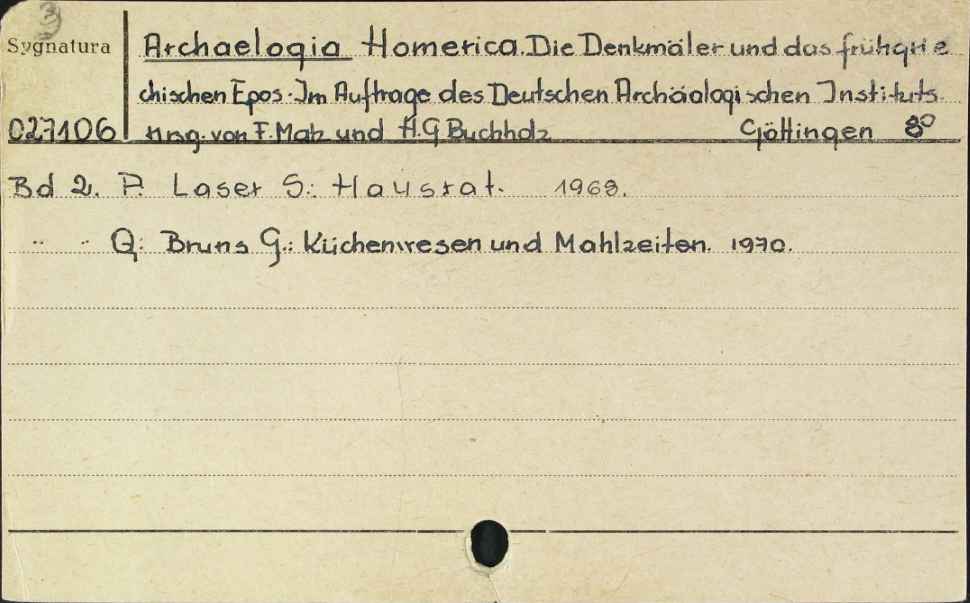 3
Sygnatura Archaelogia Homerica. Die Denkmäler und das frühgrie
chischen Epos. Im Auftrage des Deutschen Archäologischen Instituts
027106 Hrsg. von F. Matz und H.G Buchholz Göttingen 8°
Bd 2. P. Laser S.: Hausrat. 1968.
" " Q: Bruns G.: Küchenwesen und Mahlzeiten. 1970.